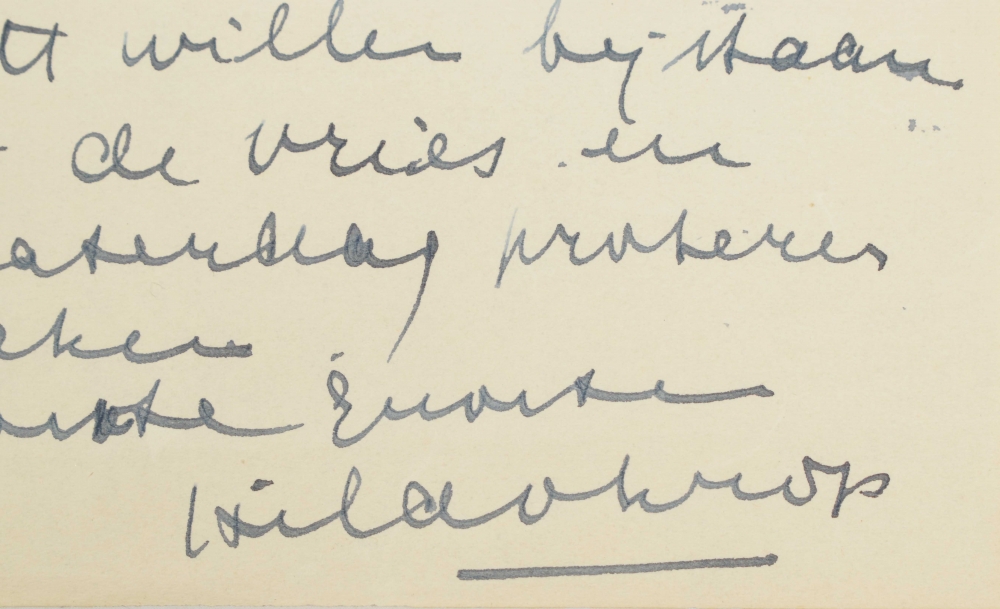 tt willen bij-staan
de vries en
aterdag proberen
eken
Groeten
Hildokrop